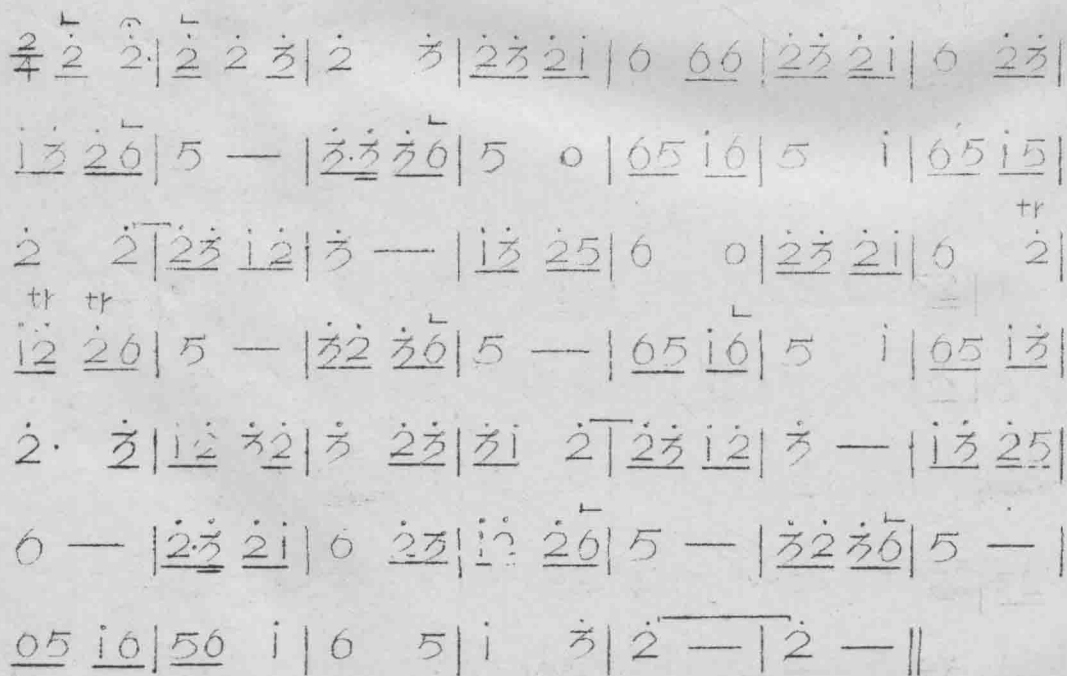 2/4 2̇ 2̇. | 2̇ 2̇ 3̇ | 2̇ 3̇ | 2̇3̇ 2̇1̇ | 6 66 | 2̇3̇ 2̇1̇ | 6 2̇3̇ |
1̇3̇ 2̇6 | 5 — | 3̇.3̇ 3̇6 | 5 0 | 65 1̇6 | 5 1̇ | 65 1̇5 |
tr
2̇ 2̇ | 2̇3̇ 1̇2̇ | 3̇ — | 1̇3̇ 2̇5 | 6 0 | 2̇3̇ 2̇1̇ | 6 2̇ |
tr tr
1̇2̇ 2̇6 | 5 — | 3̇2̇ 3̇6 | 5 — | 65 1̇6 | 5 1̇ | 65 1̇3̇ |
2̇. 3̇ | 1̇2̇ 3̇2̇ | 3̇ 2̇3̇ | 3̇1̇ 2̇ | 2̇3̇ 1̇2̇ | 3̇ — | 1̇3̇ 2̇5 |
6 — | 2̇.3̇ 2̇1̇ | 6 2̇3̇ | 1̇2̇ 2̇6 | 5 — | 3̇2̇ 3̇6 | 5 — |
65 1̇6 | 56 1̇ | 6 5 | 1̇ 3̇ | 2̇ — | 2̇ — ‖